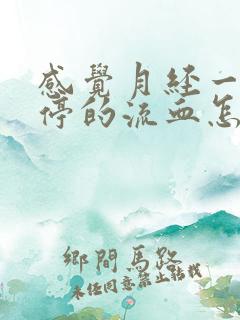 感覺月經一
停的流血怎
鄉間馬路
未經同意禁止轉載